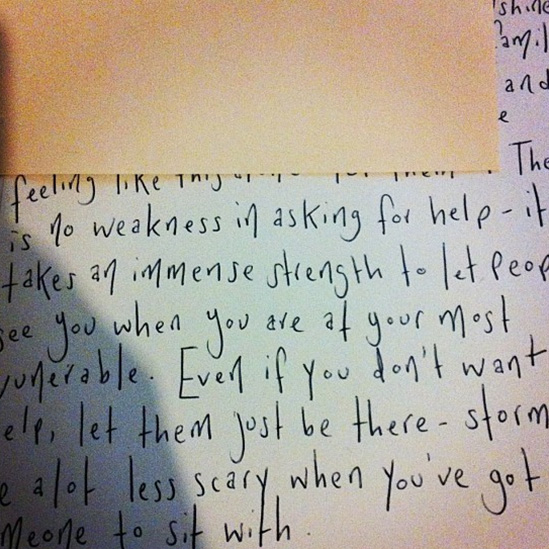 shine
famil
and
e
feeling like this The
is no weakness in asking for help - it
takes an immense strength to let peop
see you when you are at your most
vunerable. Even if you don't want
elp, let them just be there - storm
e alot less scary when you've got
meone to sit with.